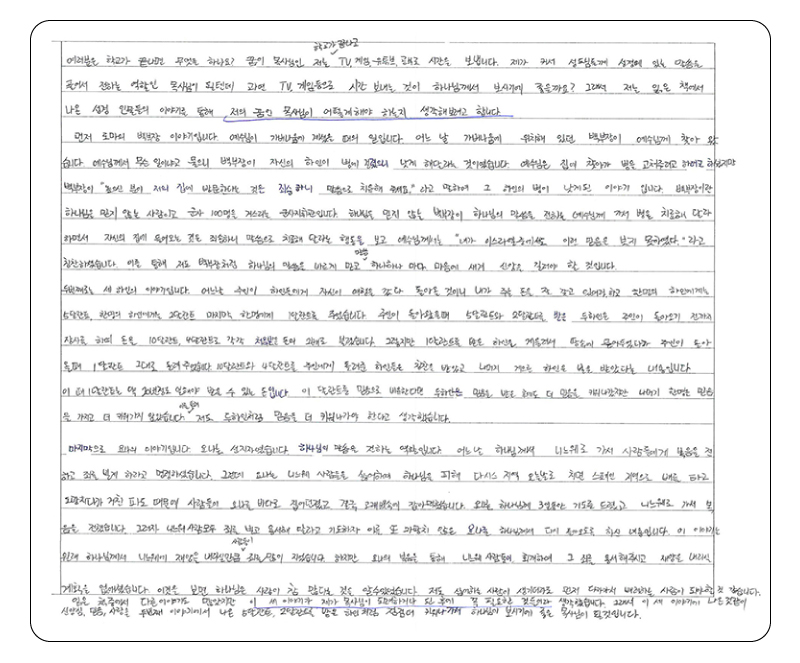 학교가 끝나고
여러분은 학교가 끝나면 무엇을 하나요? 꿈이 목사님인 저는 TV, 게임, 유튜브, 공부로 시간을 보냅니다. 제가 커서 성도님들께 성경에 있는 말씀을
전하는 역할인 목사님이 될텐데 과연 TV, 게임등으로 시간 보내는 것이 하나님께서 보시기에 좋을까요? 그래서 저는 읽은 책에서
나온 성경 인물들의 이야기를 통해 저의 꿈인 목사님이 어떻게해야 하는지 생각해보려고 합니다.
먼저 로마의 백부장 이야기입니다. 예수님이 가버나움에 계셨을 때의 일입니다. 어느 날 가버나움에 위치해 있던 백부장이 예수님께 찾아 왔
습니다. 예수님께서 무슨 일이냐고 물으니 백부장이 자신의 하인이 병에 걸렸으니 낫게 해달라는 것이었습니다. 예수님은 집에 찾아가 병을 고쳐주려고 하셨지만
백부장이 저의 집에 방문하다는 것은 죄송하니 말씀으로 치유해 주세요." 라고 말하여 그 하인의 병이 낫게된 이야기 입니다. 백부장이란
하나님을 믿지 않는 사람이고 군사 100명을 거느리는 하나님을 믿지 않는 백부장이 하나님의 말씀을 전하는 예수님께 가서 병을 치료해 달라
하면서 자신의 집에 들어오는 것은 죄송하니 말씀으로 치료해 달라는 행동을 보고 예수님께서는 "내가 이스라엘 중에서도 이런 믿음은 보지 못하였다." 라고
칭찬하셨습니다. 이를 통해 저도 백부장처럼 하나님의 말씀을 바르게 믿고 하나하나 마다 마음에 새겨 신앙을 길러야 할 것입니다.
두번째로는 세 하인의 이야기입니다. 어느날 주인이 하인들에게 자신이 여행을 갔다 돌아올 것이니 내가 주는 돈을 잘 갖고 있어라하고 한명의 하인에게는
5달란트, 한명의 하인에게는 2달란트 마지막 한명에게 1달란트를 주었습니다. 주인이 돌아왔을때 5달란트와 2달란트를 받은 두하인은 주인이 돌아오기 전까지
장사를 하여 돈을 10달란트, 4달란트로 각각 그대로 불렸습니다. 그렇지만 1달란트를 받은 하인은 게을러서 땅속에 묻어두었다가 주인이 돌아
올때 1달란트 그대로 돌려 주었습니다. 10달란트와 4달란트를 주인에게 돌려준 하인들은 칭찬을 받았고 나머지 게으른 하인은 벌을 받았다는 내용입니다.
이 때 1달란트는 약 20년정도 일해야 받을 수 있는 돈입니다. 이 달란트를 믿음으로 비유한다면 두하인은 믿음을 받은 뒤에도 더 믿음을 키워나갔지만 나머지 한명은 믿음
을 가지고 더 키워가지 않았습니다. 이를 통해 저도 두하인처럼 믿음을 더 키워나가야 한다고 생각했습니다.
마지막으로 요나의 이야기입니다. 요나는 선지자였습니다. 하나님의 말씀을 전하는 역할입니다. 어느 날 하나님께서 니느웨로 가서 사람들에게 복음을 전
하고 죄를 빌게 하라고 명령하셨습니다. 그런데 요나는 니느웨 사람들을 싫어하여 하나님을 피해 다시스 지역 오늘날로 치면 스페인 지역으로 배를 타고
거친 파도 때문에 사람들이 요나를 바다로 집어던졌고 결국 고래뱃속에 잡아먹혔습니다. 요나는 하나님께 3일동안 기도를 드리고 니느웨로 가서 복
음을 전했습니다. 그러자 니느웨사람모두 죄를 빌고 용서해 달라고 기도하자
원래 하나님께서 니느웨에 재앙을 하지만 요나의 복음을 통해 니느웨 사람들이 회개하여 그 죄를 용서해주시고 재앙을 내리실
계획을 없애셨습니다. 이것을 보면 하나님은 사랑이 참 많다는 것을 알수있었습니다. 저도 싫어하는 사람이 생기더라도 먼저 다가가서 배려하는 사람이 되야할 것 같습니다.
읽은 책중에서 다른 이야기도 많았지만 이 세 이야기가 제가 목사님이 되려할때나 된 후에 꼭 필요한 것들이라 생각했습니다. 그래서 이 세 이야기에 나온것처럼
신앙심, 믿음, 사랑을 두번째 이야기에서 나온 5달란트, 2달란트 받은 하인처럼 점점더 키워나가며 하나님이 보시기에 좋은 목사님이 될것입니다.